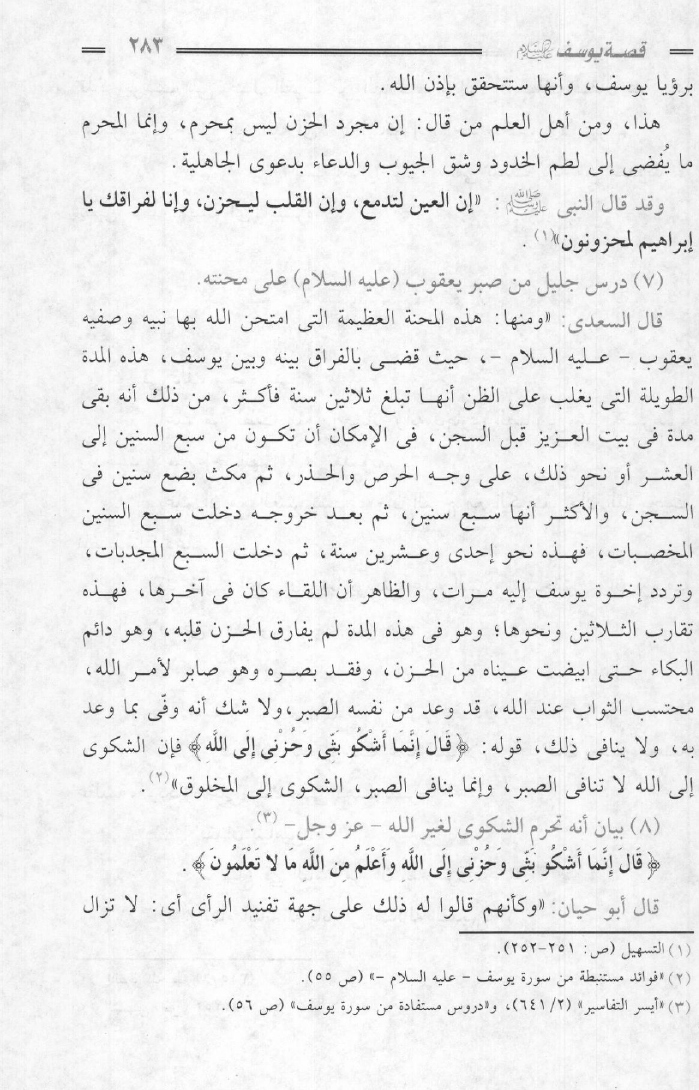 قصة يوسف عليه السلام ٢٨٣
برؤيا يوسف، وأنها ستتحقق بإذن الله.
هذا، ومن أهل العلم من قال: إن مجرد الحزن ليس بمحرم، وإنما المحرم
ما يُفضى إلى لطم الخدود وشق الجيوب والدعاء بدعوى الجاهلية.
وقد قال النبى ﷺ: «إن العين لتدمع، وإن القلب ليـحزن، وإنا لفراقك يا
إبراهيم لمحزونون»(١).
(٧) درس جليل من صبر يعقوب (عليه السلام) على محنته.
قال السعدى: «ومنها: هذه المحنة العظيمة التى امتحن الله بها نبيه وصفيه
يعقوب - عـليه السلام -، حيث قضـى بالفراق بينه وبين يوسف، هذه المدة
الطويلة التى يغلب على الظن أنهـا تبلغ ثلاثين سنة فأكـثر، من ذلك أنه بقى
مدة فى بيت العـزيز قبل السجن، فى الإمكان أن تكـون من سبع السنين إلى
العشـر أو نحو ذلك، على وجـه الحرص والحـذر، ثم مكث بضع سنين فى
السجـن، والأكثر أنها سـبع سنين، ثم بعـد خروجـه دخلت سـبع السنين
المخصـبات، فهـذه نحو إحدى وعـشرين سنة، ثم دخلت السـبع المجدبات،
وتردد إخـوة يوسف إليه مـرات، والظاهر أن اللقـاء كان فى آخـرها، فهـذه
تقارب الثـلاثين ونحوها؛ وهو فى هذه المدة لم يفارق الحـزن قلبه، وهو دائم
البكاء حتـى ابيضت عـيناه من الحـزن، وفقـد بصـره وهو صابر لأمـر الله،
محتسب الثواب عند الله، قد وعد من نفسه الصبر،ولا شك أنه وفّى بما وعد
به، ولا ينافى ذلك، قوله: ﴿قَالَ إِنَّمَا أَشْكُو بَثِّى وَحُزْنِى إِلَى اللَّهِ﴾ فإن الشكوى
إلى الله لا تنافى الصبر، وإنما ينافى الصبر، الشكوى إلى المخلوق»(٢).
(٨) بيان أنه تحرم الشكوى لغير الله - عز وجل-(٣).
﴿قَالَ إِنَّمَا أَشْكُو بَثِّى وَحُزْنِى إِلَى اللَّهِ وَأَعْلَمُ مِنَ اللَّهِ مَا لا تَعْلَمُونَ﴾.
قال أبو حيان: «وكأنهم قالوا له ذلك على جهة تفنيد الرأى أى: لا تزال
(١) التسهيل (ص: ٢٥١-٢٥٢).
(٢) «فوائد مستنبطة من سورة يوسف - عليه السلام -» (ص ٥٥).
(٣) «أيسر التفاسير» (٢/ ٦٤١)، و«دروس مستفادة من سورة يوسف» (ص ٥٦).